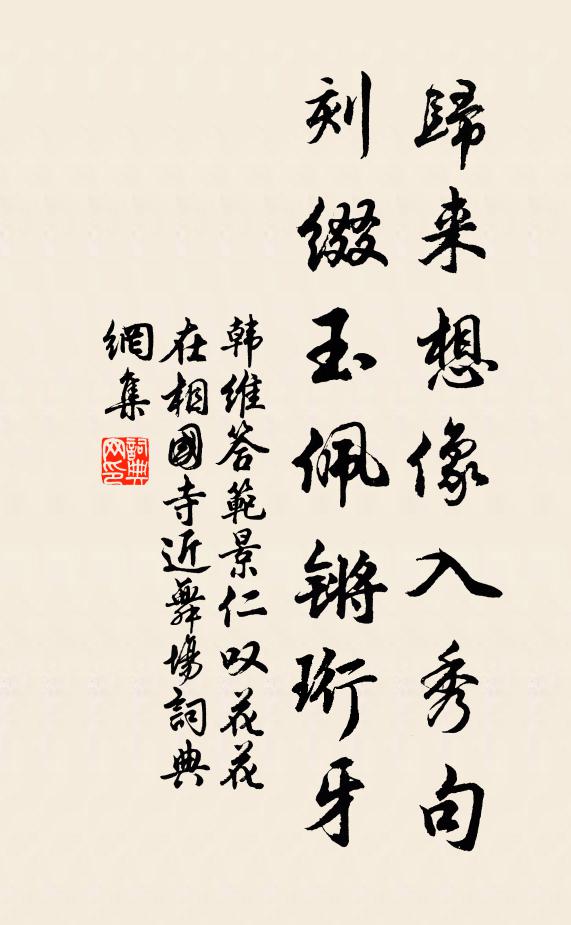 歸来想像入秀句
刻缀玉佩锵珩牙
韩维答範景仁叹花花
在相國寺近舞場詞典
網集
詞典網印